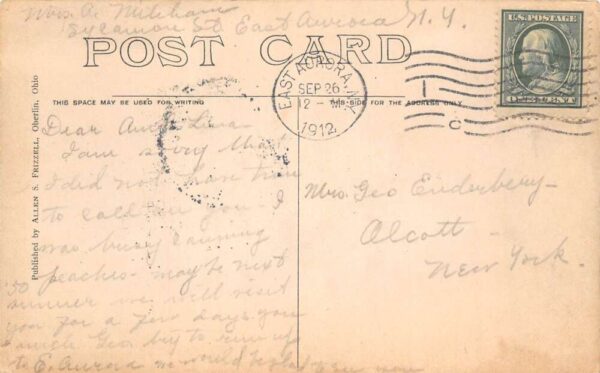 Mrs. A. Mitcham
Sycamore St East Aurora N.Y.
POST CARD
U.S. POSTAGE
ONE CENT
EAST AURORA, N.Y.
SEP 26
12 - M
1912
THIS SPACE MAY BE USED FOR WRITING
THIS SIDE FOR THE ADDRESS ONLY
Published by ALLEN S. FRIZZELL, Oberlin, Ohio
Dear Aunt
I am sorry that
I did not have time
to call on you - I
was busy canning
peaches - maybe next
summer we will visit
you for a few days you
Geo try to run up
to E. Aurora we would be glad to see you
Mrs. Geo Enderbery -
Olcott -
New York.